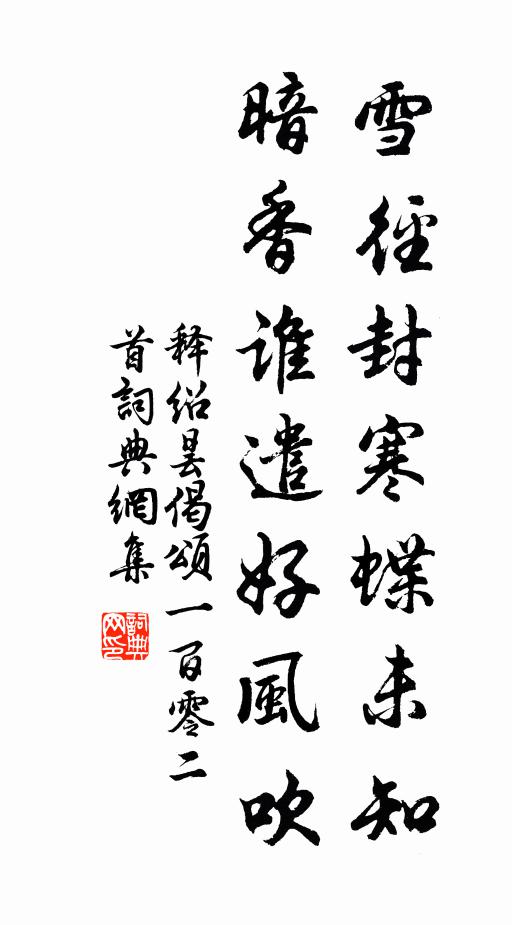 雪徑封寒蝶未知
暗香誰遣好風吹
释紹昙偈頌一百零二
首詞典網集
詞典
网印